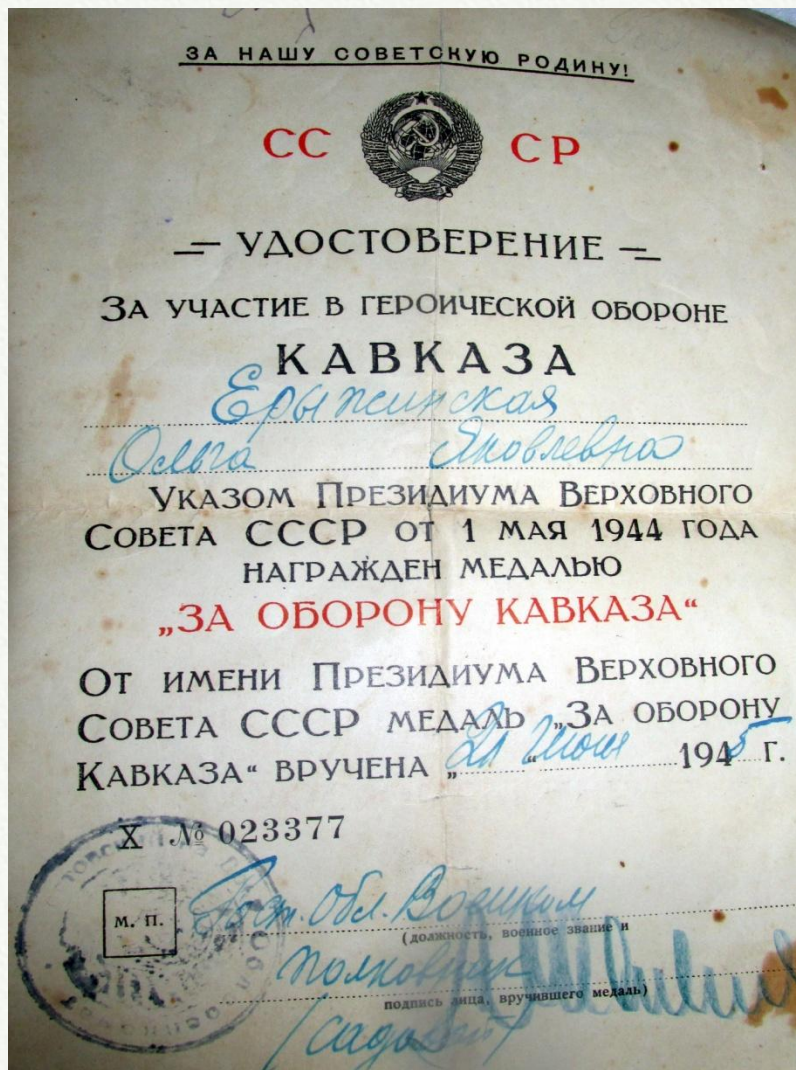 ЗА НАШУ СОВЕТСКУЮ РОДИНУ!
СС СР
УДОСТОВЕРЕНИЕ
ЗА УЧАСТИЕ В ГЕРОИЧЕСКОЙ ОБОРОНЕ
КАВКАЗА
Ерыжинская
Ольга Яковлевна
УКАЗОМ ПРЕЗИДИУМА ВЕРХОВНОГО
СОВЕТА СССР ОТ 1 МАЯ 1944 ГОДА
НАГРАЖДЕН МЕДАЛЬЮ
„ЗА ОБОРОНУ КАВКАЗА“
ОТ ИМЕНИ ПРЕЗИДИУМА ВЕРХОВНОГО
СОВЕТА СССР МЕДАЛЬ „ЗА ОБОРОНУ
КАВКАЗА“ ВРУЧЕНА „21“ 1945 Г.
X № 023377
Рост. Обл. Военком
М. П.
(должность, военное звание и
полковник
подпись лица, вручившего медаль)